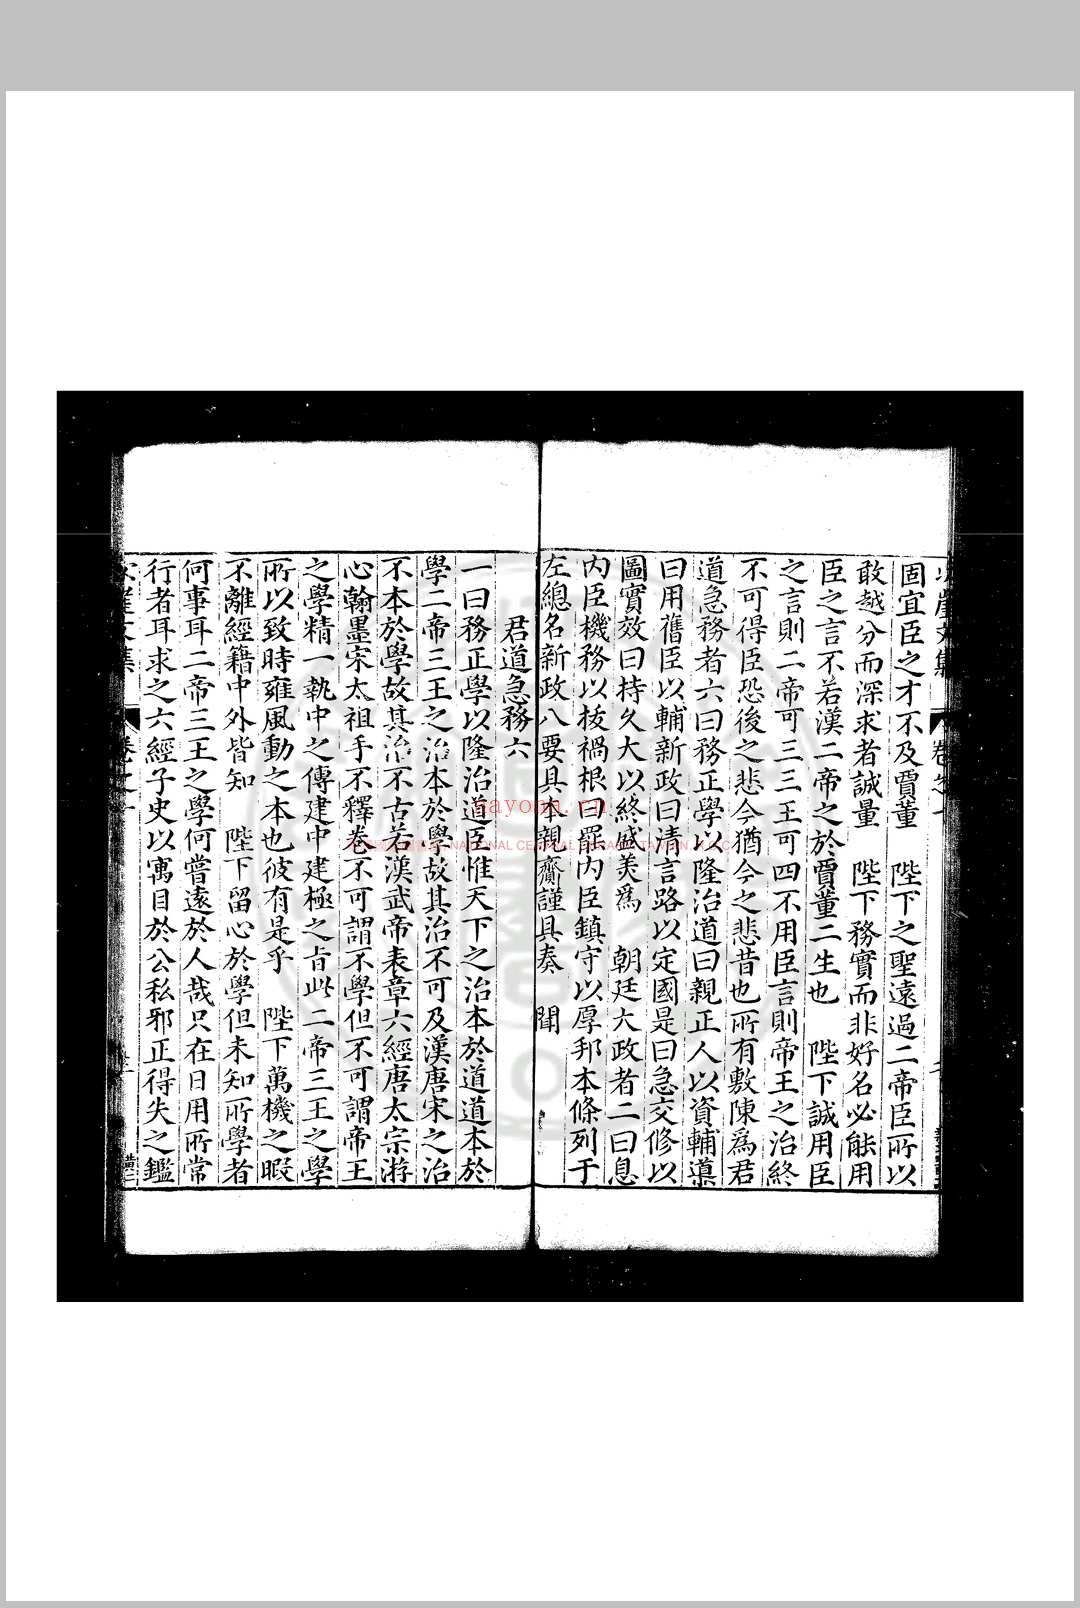 固宜臣之才不及賈董　陛下之聖遠過二帝臣所以
敢越分而深求者誠量　陛下務實而非好名必能用
臣之言不若漢二帝之於賈董二生也　陛下誠用臣
之言則二帝可三三王可四不用臣言則帝王之治終
不可得臣恐後之悲今猶今之悲昔也所有敷陳爲君
道急務者六曰務正學以隆治道曰親正人以資輔導
曰用舊臣以輔新政曰清言路以定國是曰急交修以
圖實效曰持久大以終盛美爲　朝廷大政者二曰息
內臣機務以拔禍根曰罷內臣鎮守以厚邦本條列于
左總名新政八要具本親齎謹具奏　聞
君道急務六
一曰務正學以隆治道臣惟天下之治本於道道本於
學二帝三王之治本於學故其治不可及漢唐宋之治
不本於學故其治不古若漢武帝表章六經唐太宗游
心翰墨宋太祖手不釋卷不可謂不學但不可謂帝王
之學精一執中之傳建中建極之旨此二帝三王之學
所以致時雍風動之本也彼有是乎　陛下萬機之暇
不離經籍中外皆知　陛下留心於學但未知所學者
何事耳二帝三王之學何嘗遠於人哉只在日用所常
行者耳求之六經子史以寓目於公私邪正得失之鑑
nayoon.cn